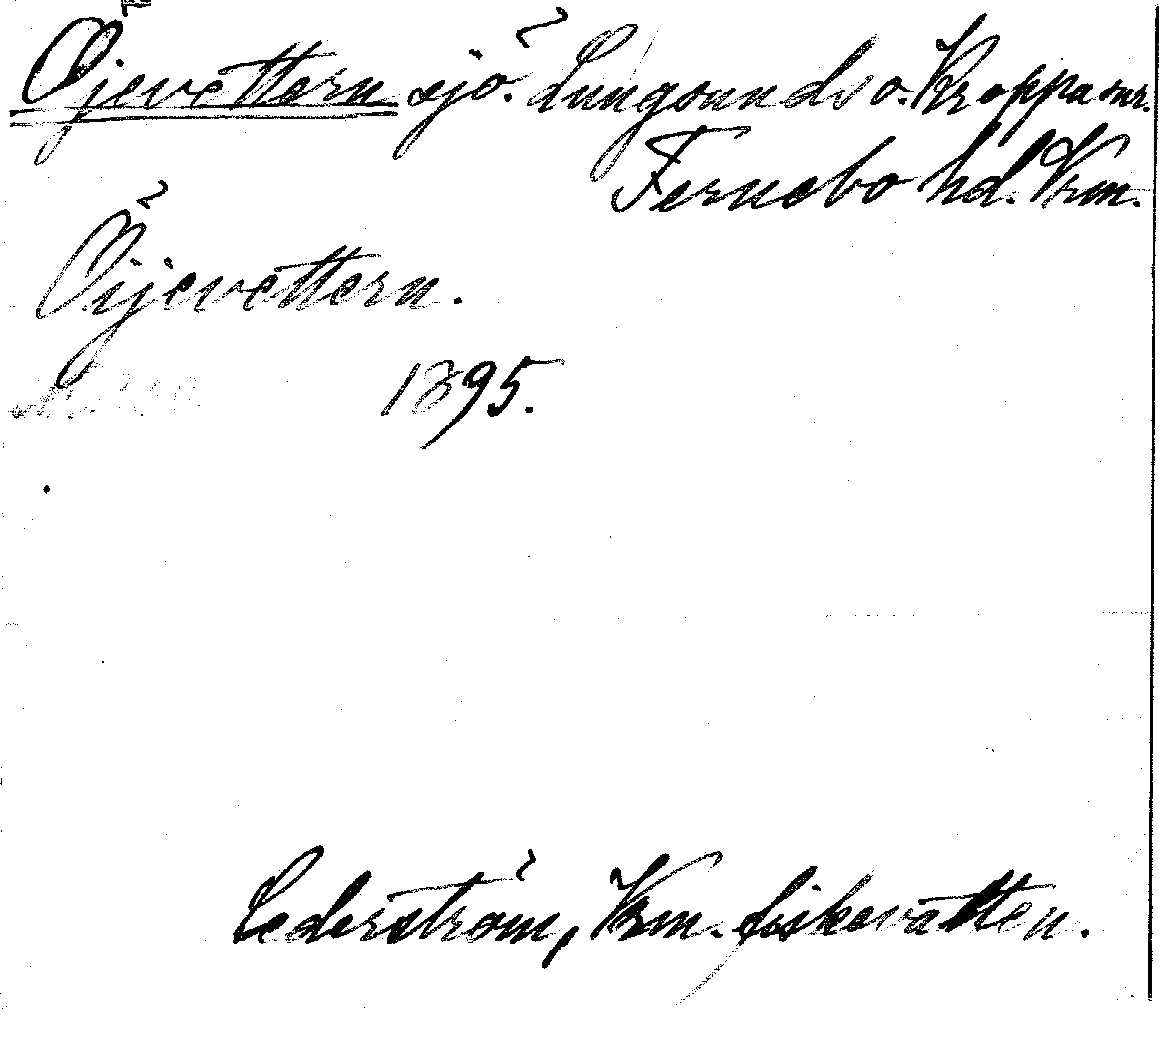 Öjevettern sjö. Lungsunds o. Kroppa snr.
Fernebo hd. Vrm.
Öijevettern.
1895.
Cederström, Vrm. fiskevatten.